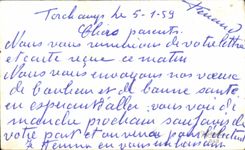 Torchamps le 5-1-59
Chers parents
Nous vous remercions de votre lettre
et carte reçue ce matin
Nous vous envoyons nos vœux
de bonheur et de bonne santé
en espérant aller vous voir di
manche prochain sauf avis de
votre part et on verra pour
en vous